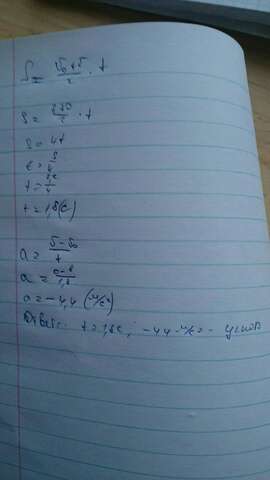 S = (v₀+v)/2 · t
S = (8+0)/2 · t
S = 4t
t = S/4
t =
t = 1,8(с)
a = (v-v₀)/t
a = (0-8)/1,8
a = -4,4 (м/с²)
Ответ: t = 1,8с; -4,4 м/с² -